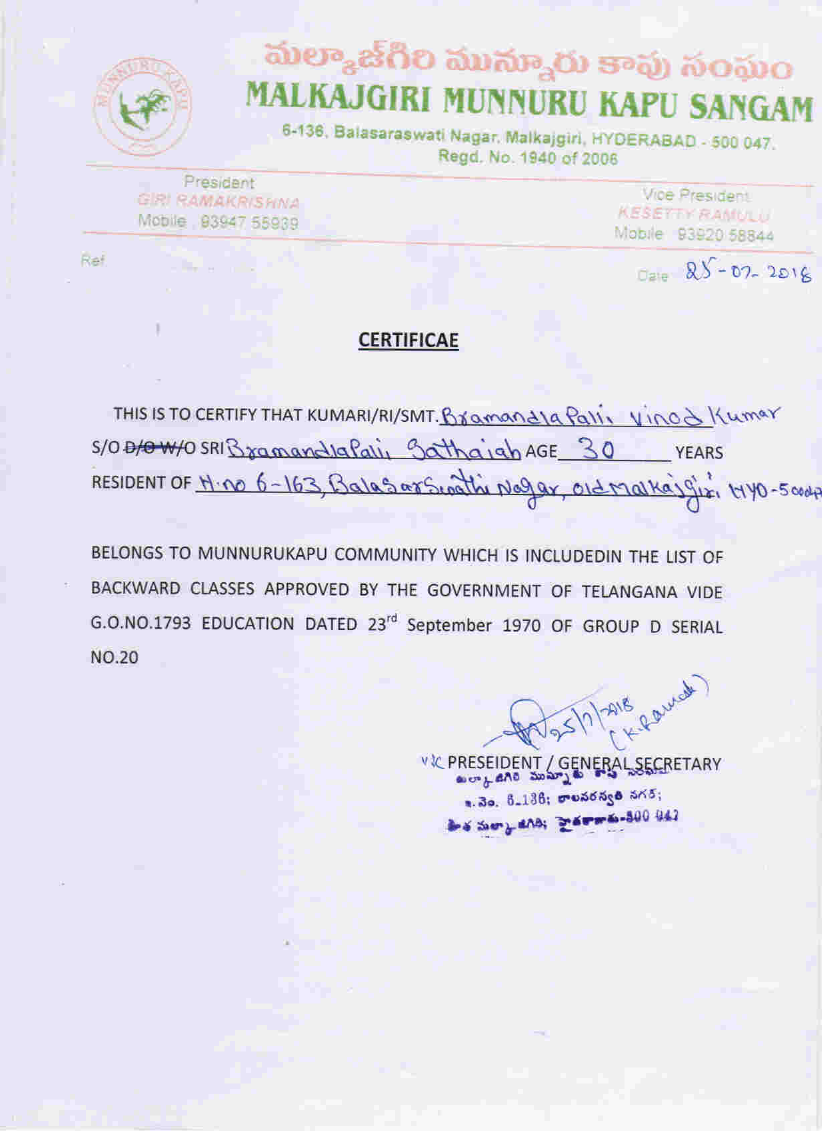 MUNNURU KAPU
మల్కాజ్‌గిరి మున్నూరు కాపు సంఘం
MALKAJGIRI MUNNURU KAPU SANGAM
6-136, Balasaraswati Nagar, Malkajgiri, HYDERABAD - 500 047.
Regd. No. 1940 of 2006
President
GIRI RAMAKRISHNA
Mobile : 93947 55939
Vice President
KESETTY RAMULU
Mobile 93920 58844
Ref
Date 25-07-2018
CERTIFICAE
THIS IS TO CERTIFY THAT KUMARI/RI/SMT. Bramandlapalli Vinod Kumar
S/O D/O W/O SRI Bramandlapalli Sathaiah AGE 30 YEARS
RESIDENT OF H.no 6-163, Balasarswathi Nagar, old Malkajgiri, HYD-500047
BELONGS TO MUNNURUKAPU COMMUNITY WHICH IS INCLUDEDIN THE LIST OF
BACKWARD CLASSES APPROVED BY THE GOVERNMENT OF TELANGANA VIDE
G.O.NO.1793 EDUCATION DATED 23rd September 1970 OF GROUP D SERIAL
NO.20
25/7/2018
(K. )
PRESEIDENT / GENERAL SECRETARY
మల్కాజిగిరి మున్నూరు కాపు సంఘము
ఇ.నెం. 6-136; బాలసరస్వతి నగర్;
పాత మల్కాజిగిరి; హైదరాబాదు-500 047